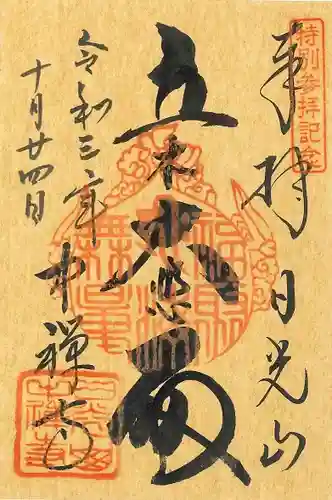 特別参拝記念
奉拝 日光山
立木大悲殿
令和三年
十月廿四日
中禅寺